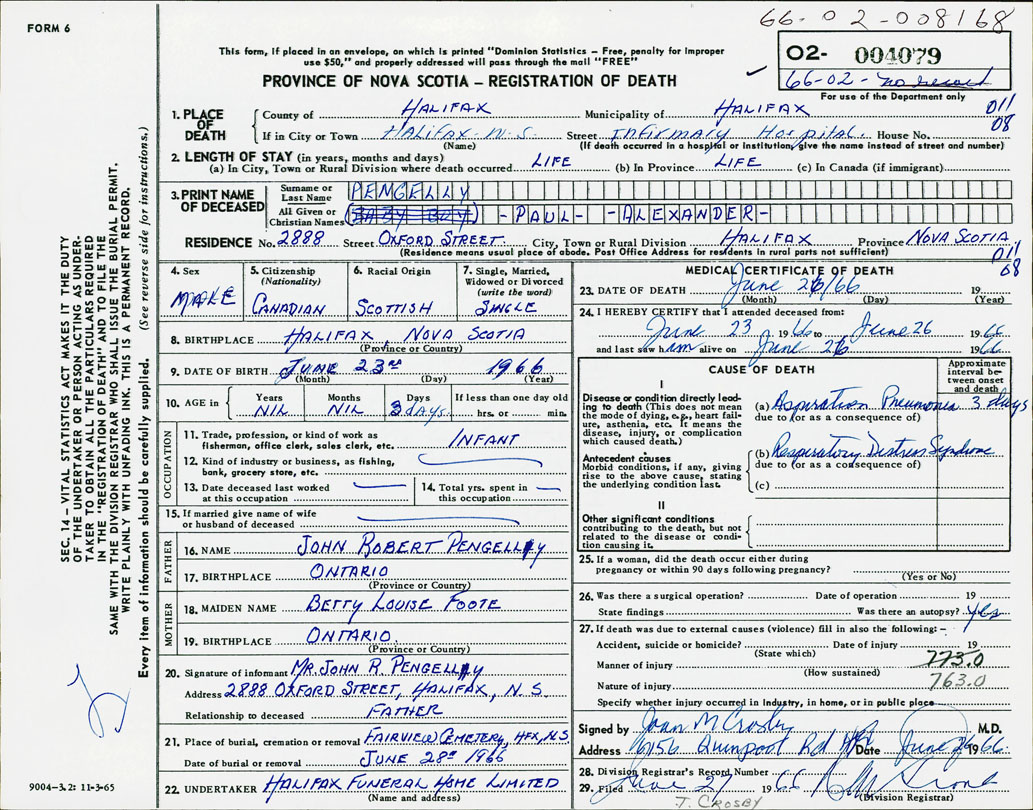 66-02-008168
FORM 6
This form, if placed in an envelope, on which is printed "Dominion Statistics – Free, penalty for improper
use $50," and properly addressed will pass through the mail "FREE"
02- 004079
66-02- no record
For use of the Department only
PROVINCE OF NOVA SCOTIA – REGISTRATION OF DEATH
011
08
1. PLACE OF DEATH
County of HALIFAX Municipality of HALIFAX
If in City or Town HALIFAX N.S. Street Infirmary Hospital. House No.
(Name) (If death occurred in a hospital or institution, give the name instead of street and number)
2. LENGTH OF STAY (in years, months and days)
(a) In City, Town or Rural Division where death occurred LIFE (b) In Province LIFE (c) In Canada (if immigrant)
3. PRINT NAME OF DECEASED
Surname or Last Name PENGELLY
All Given or Christian Names (BABY BOY) -PAUL- -ALEXANDER-
RESIDENCE No. 2888 Street OXFORD STREET City, Town or Rural Division HALIFAX Province NOVA SCOTIA
(Residence means usual place of abode. Post Office Address for residents in rural parts not sufficient)
011
08
4. Sex MALE
5. Citizenship (Nationality) CANADIAN
6. Racial Origin SCOTTISH
7. Single, Married, Widowed or Divorced (write the word) SINGLE
8. BIRTHPLACE HALIFAX, NOVA SCOTIA
(Province or Country)
9. DATE OF BIRTH JUNE 23rd 1966
(Month) (Day) (Year)
10. AGE in Years NIL Months NIL Days 3 days If less than one day old hrs. or min.
OCCUPATION
11. Trade, profession, or kind of work as fisherman, office clerk, sales clerk, etc. INFANT
12. Kind of industry or business, as fishing, bank, grocery store, etc.
13. Date deceased last worked at this occupation
14. Total yrs. spent in this occupation
15. If married give name of wife or husband of deceased
FATHER
16. NAME JOHN ROBERT PENGELLY
17. BIRTHPLACE ONTARIO
(Province or Country)
MOTHER
18. MAIDEN NAME BETTY LOUISE FOOTE
19. BIRTHPLACE ONTARIO.
(Province or Country)
20. Signature of informant MR. JOHN R. PENGELLY
Address 2888 OXFORD STREET, HALIFAX, N.S.
Relationship to deceased FATHER
21. Place of burial, cremation or removal FAIRVIEW CEMETERY, HFX, N.S.
Date of burial or removal JUNE 28th 1966
22. UNDERTAKER HALIFAX FUNERAL HOME LIMITED
(Name and address)
MEDICAL CERTIFICATE OF DEATH
23. DATE OF DEATH June 26/66 19
(Month) (Day) (Year)
24. I HEREBY CERTIFY that I attended deceased from:
June 23 1966 to June 26 1966
and last saw him alive on June 26 1966
CAUSE OF DEATH
Approximate interval between onset and death
I
Disease or condition directly leading to death (This does not mean the mode of dying, e.g., heart failure, asthenia, etc. It means the disease, injury, or complication which caused death.)
(a) Aspiration Pneumonia 3 days
due to (or as a consequence of)
Antecedent causes
Morbid conditions, if any, giving rise to the above cause, stating the underlying condition last.
(b) Respiratory Distress Syndrome
due to (or as a consequence of)
(c)
II
Other significant conditions
contributing to the death, but not related to the disease or condition causing it.
25. If a woman, did the death occur either during pregnancy or within 90 days following pregnancy?
(Yes or No)
26. Was there a surgical operation? Date of operation 19
State findings Was there an autopsy? Yes
27. If death was due to external causes (violence) fill in also the following: –
Accident, suicide or homicide? Date of injury 19
(State which)
773.0
Manner of injury
(How sustained)
763.0
Nature of injury
Specify whether injury occurred in industry, in home, or in public place
Signed by Joan M Crosby M.D.
Address 6156 Quinpool Rd Hfx Date June 26 1966
28. Division Registrar's Record Number
29. Filed June 27 1966
(Division Registrar)
J. CROSBY
SEC. 14 – VITAL STATISTICS ACT MAKES IT THE DUTY
OF THE UNDERTAKER OR PERSON ACTING AS UNDER-
TAKER TO OBTAIN ALL THE PARTICULARS REQUIRED
IN THE "REGISTRATION OF DEATH" AND TO FILE THE
SAME WITH THE DIVISION REGISTRAR WHO SHALL ISSUE THE BURIAL PERMIT.
WRITE PLAINLY WITH UNFADING INK. THIS IS A PERMANENT RECORD.
Every item of information should be carefully supplied. (See reverse side for instructions.)
9004-3.2: 11-3-65